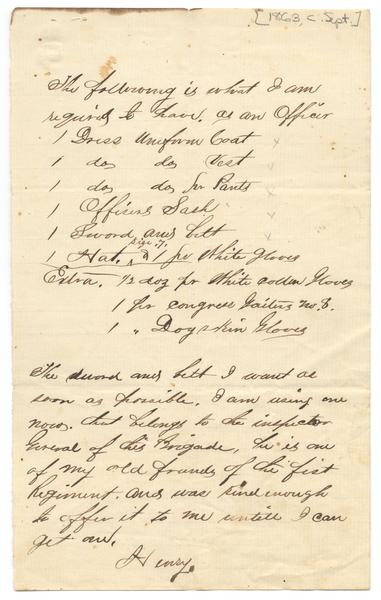 [1863, c. Sept.]
The following is what I am
required to have. as an Officer
1 Dress Uniform Coat
1 do, do, Vest
1 do, do, pr Pants
1 Officers Sash
1 Sword and belt
size 7.
1 Hat. & 1 pr White Gloves
Extra. 1/2 doz pr White cotton Gloves
1 pr congress Gaiters No 8.
1 " Dogskin Gloves
The sword and belt I want as
soon as possible. I am using one
now. that belongs to the inspector
General of this Brigade, he is one
of my old friends of the first
Regiment. and was kind enough
to offer it to me untill I can
get one.
Henry.